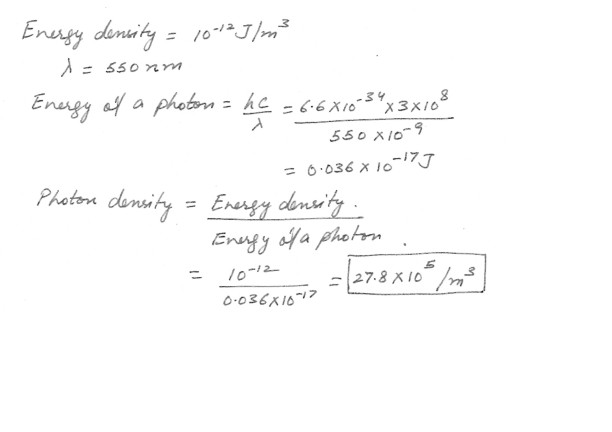 Energy density = 10⁻¹² J/m³
λ = 550 nm
Energy of a photon = hc/λ = 6.6 × 10⁻³⁴ × 3 × 10⁸ / 550 × 10⁻⁹
= 0.036 × 10⁻¹⁷ J
Photon density = Energy density. / Energy of a photon.
= 10⁻¹² / 0.036 × 10⁻¹⁷ = 27.8 × 10⁵ /m³